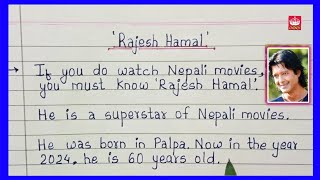 'Rajesh Hamal'
→ If you do watch Nepali movies,
you must know 'Rajesh Hamal'.
He is a superstar of Nepali movies.
He was born in Palpa. Now in the year
2024, he is 60 years old.